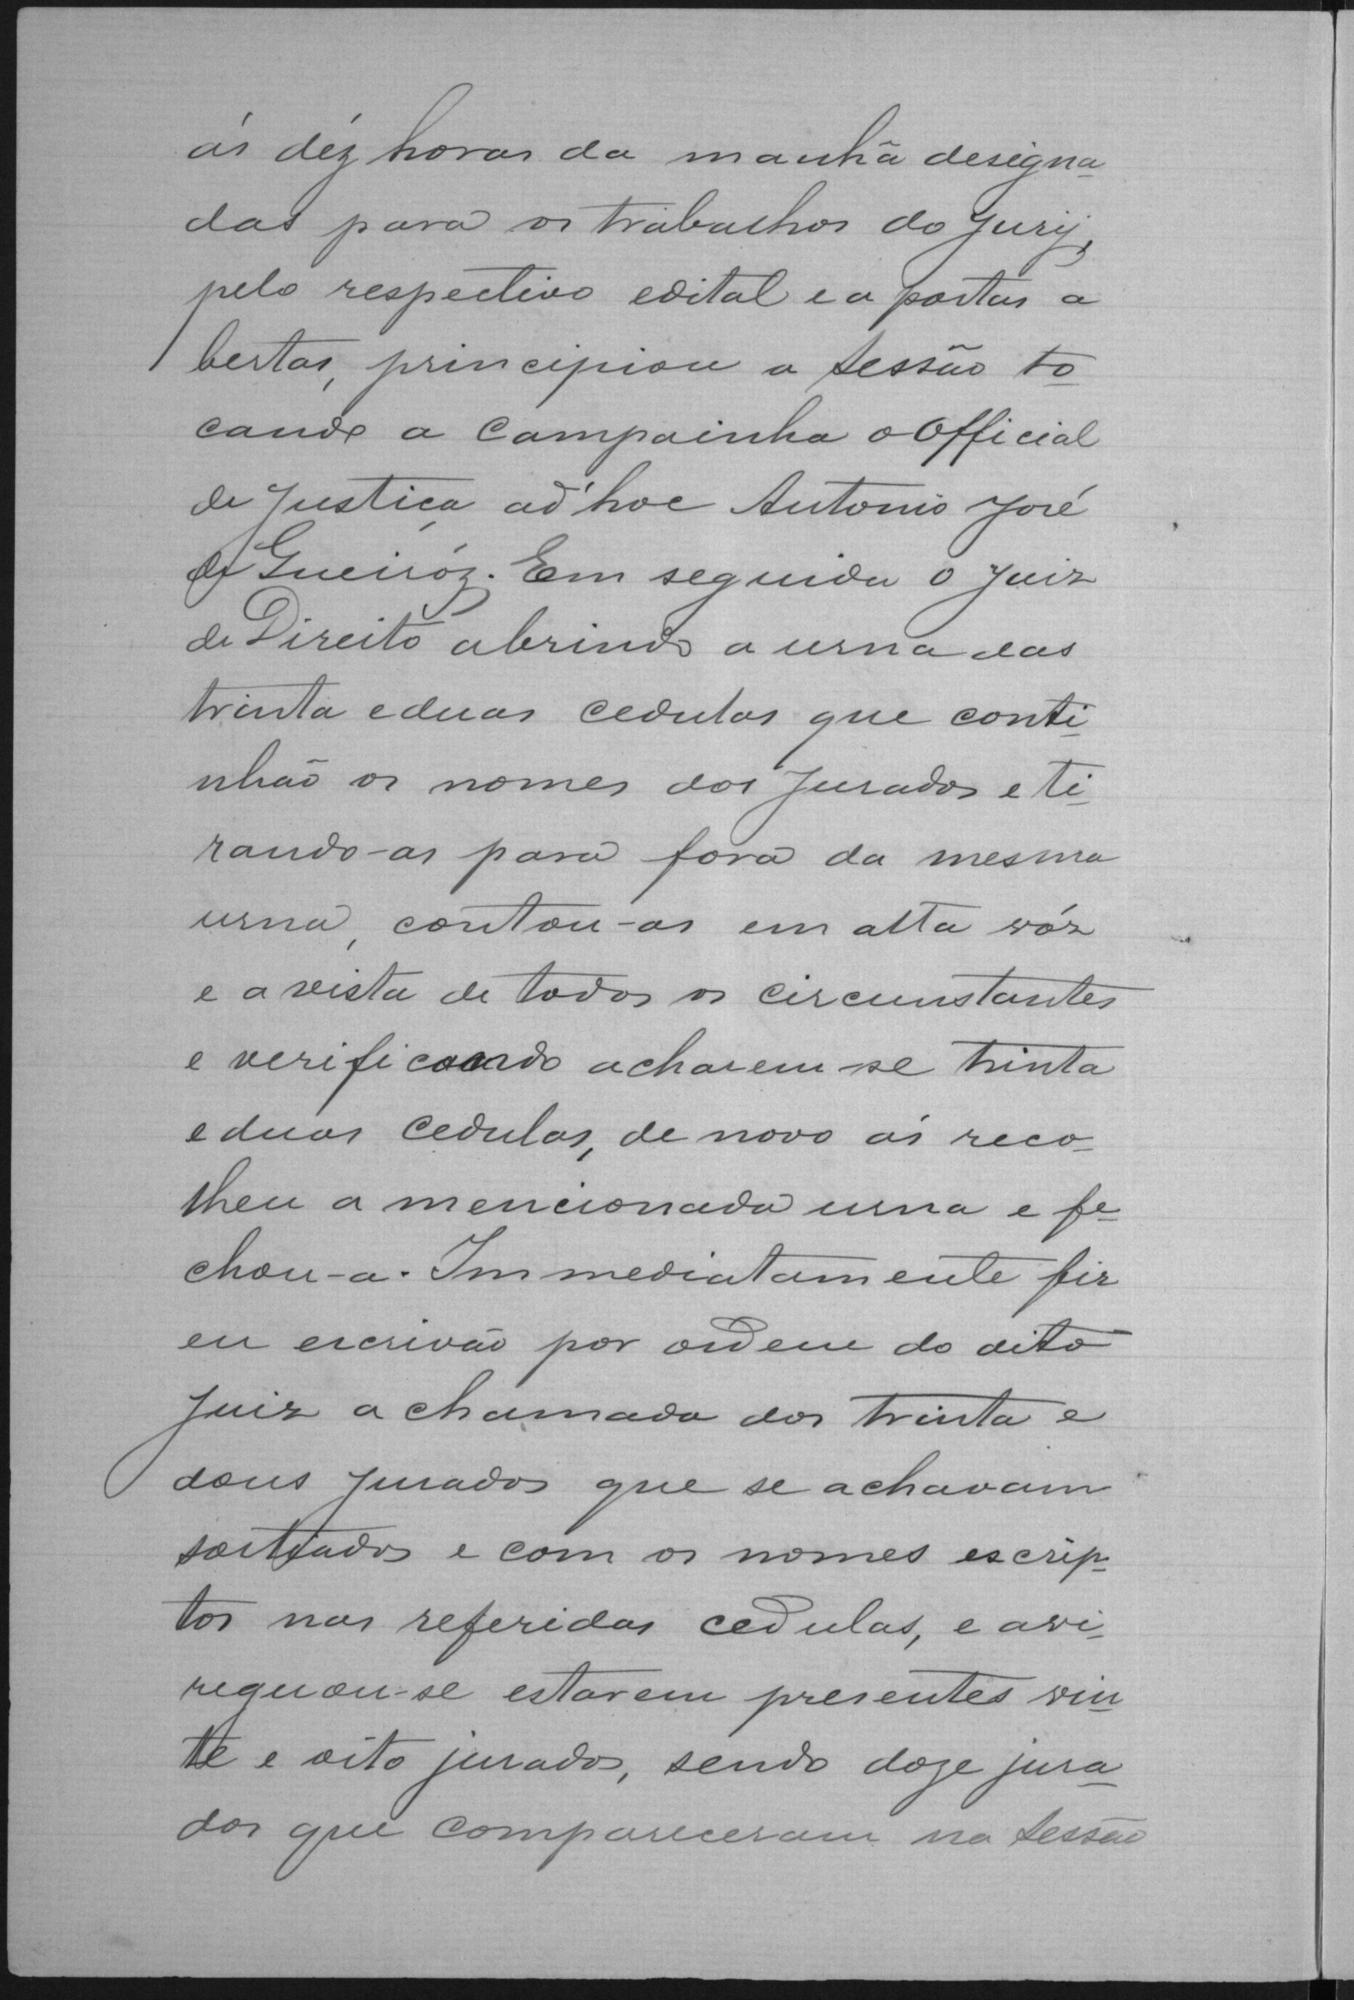 ás déz horas da manhã designa-
das para os trabalhos do Jury,
pelo respectivo edital e a portas a
bertas, principiou a sessão to-
cando a campainha o Official
de Justiça ad'hoc Antonio José
de Gueiróz. Em seguida o Juiz
de Direito abrindo a urna das
trinta e duas cedulas que conti-
nhão os nomes dos Jurados e ti-
rando-as para fora da mesma
urna, contou-as em alta vóz
e a vista de todos os circumstantes
e verificando acharem-se trinta
e duas cedulas, de novo ás reco-
lheu a mencionada urna e fe-
chou-a. Immediatamente fiz
eu escrivão por ordem do dito
Juiz a chamada dos trinta e
dous Jurados que se achavam
sorteados e com os nomes escrip-
tos nas referidas cedulas, e avi-
reguou-se estarem presentes vin-
te e oito jurados, sendo doze jura-
dos que compareceram na sessão